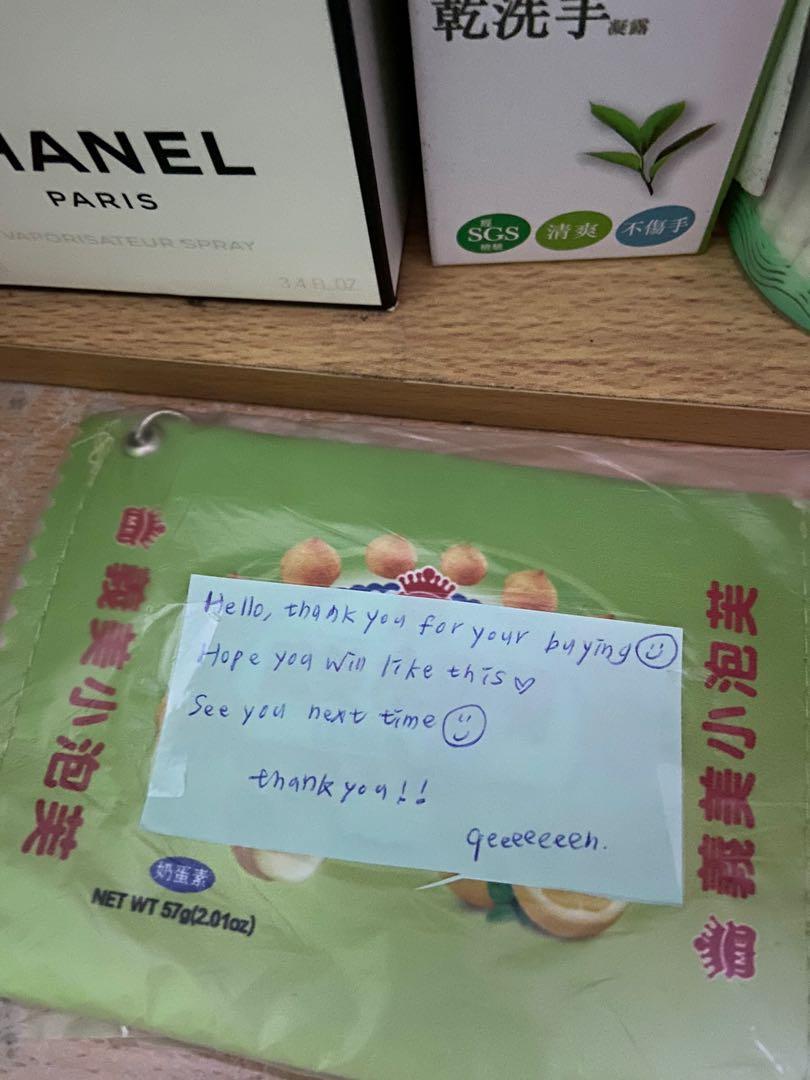 HANEL
PARIS
VAPORISATEUR SPRAY
3.4 FL. OZ
乾洗手凝露
經
SGS
檢驗
清爽
不傷手
義美小泡芙
Hello, thank you for your buying
Hope you will like this
See you next time
thank you!!
qeeeeeeen.
義美小泡芙
IMEI
奶蛋素
NET WT 57g(2.01oz)